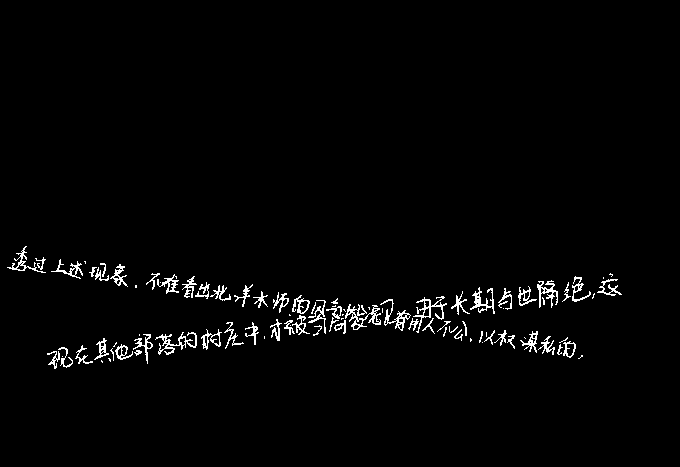 透过上述现象，不难看出北洋大师的 由于长期与世隔绝，这
现在其他部落的村庄中，才被 有用人不公，以权谋私的，